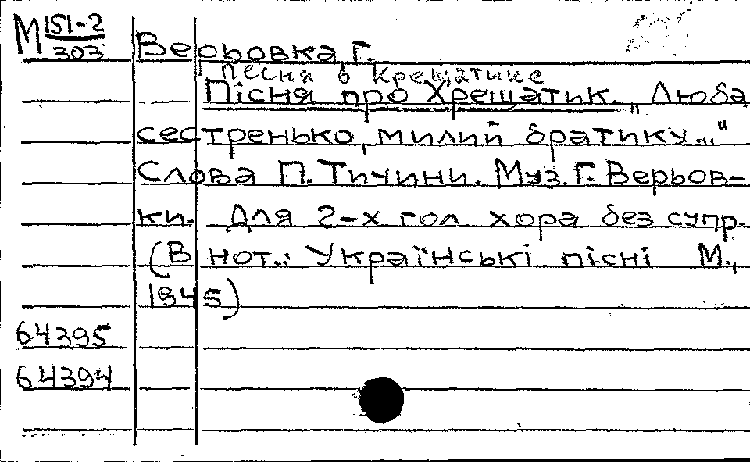 М 151-2
303
Верьовка, Г.
Песня о Крещатике
Пісня про Хрещатик. „Люба
сестренько, милий братику..."
Слова П. Тичини. Муз. Г. Верьов-
ки. Для 2-х гол. хора без супр.
(В нот.: Українські пісні М.,
1945)
64395
64394